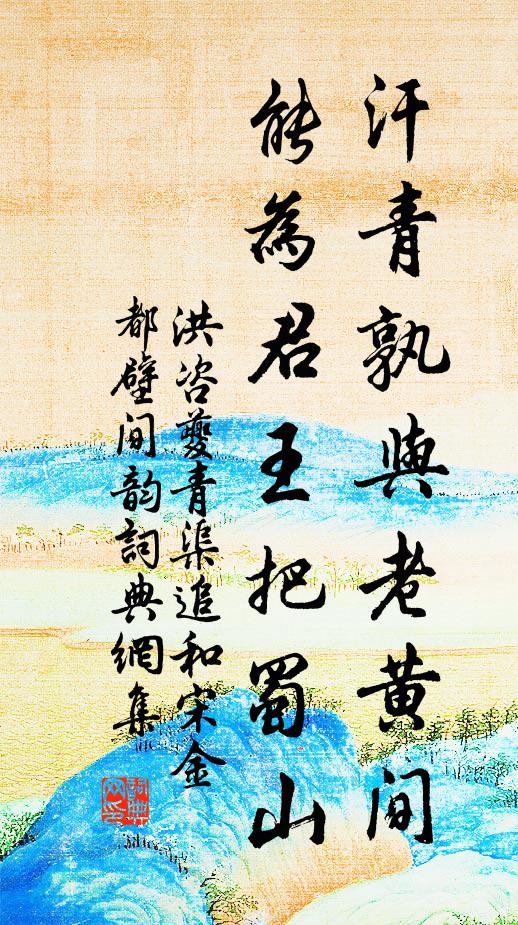 汗青孰與老黃間
能為君王把蜀山
洪咨夔青渠追和宋金
都壁間韵詞典網集